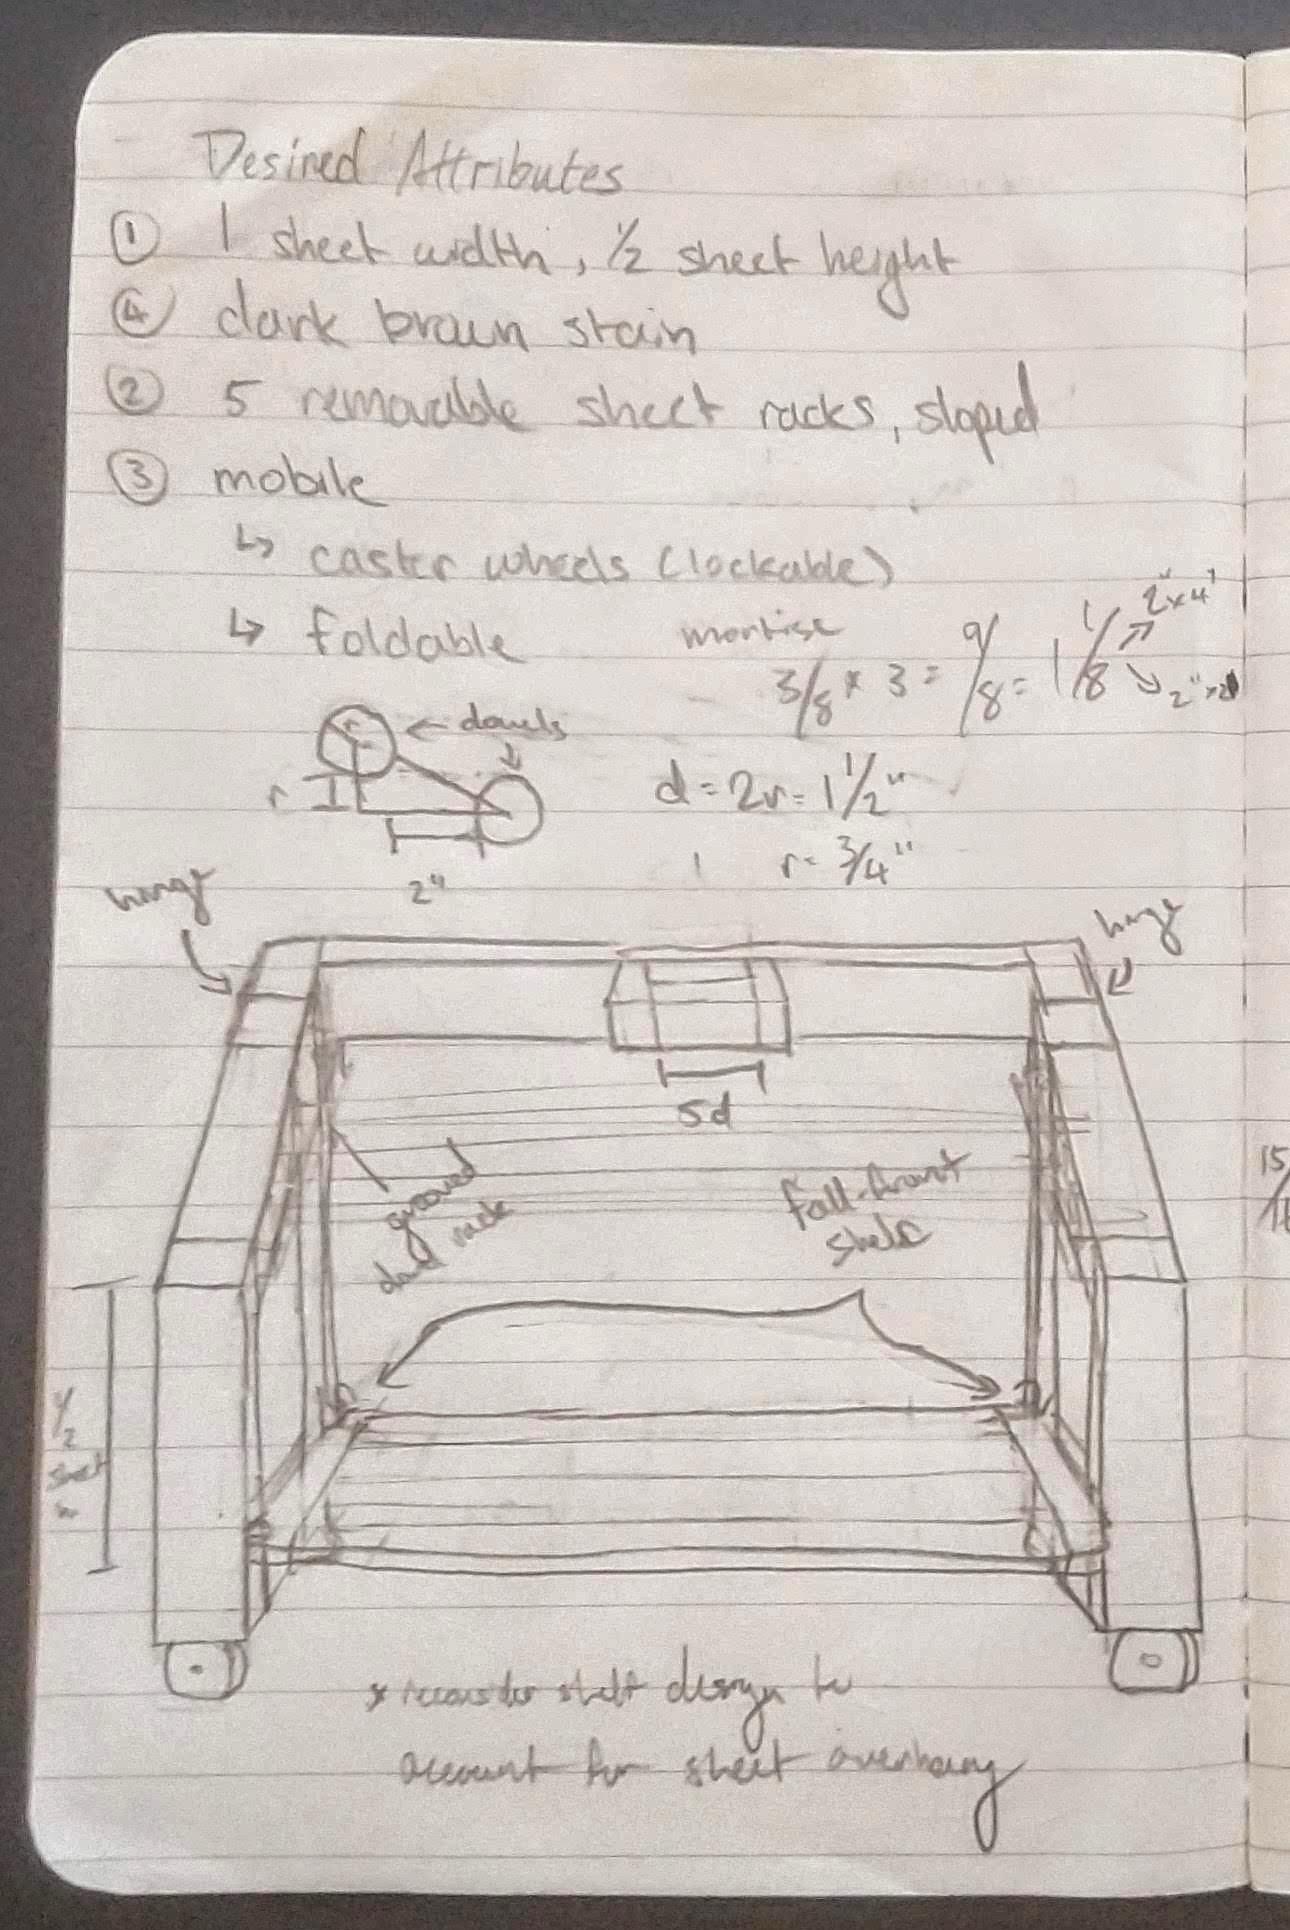 Desired Attributes
① 1 sheet width, 1/2 sheet height
④ dark brown stain
② 5 removable sheet racks, sloped
③ mobile
↳ caster wheels (lockable)
↳ foldable
mortise
3/8 * 3 = 9/8 = 1 1/8
2"x4"
2"x2"
← dowels
r
r
2"
d = 2r = 1 1/2"
r = 3/4"
hinge
hinge
5d
grooved
dowel rack
fall-front
shelf
1/2
sheet
h
15/16
* reconsider shelf design to
account for sheet overhang